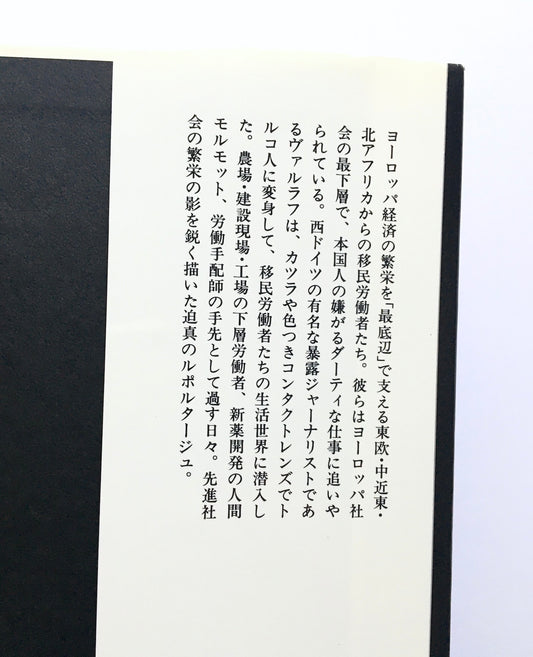 ヨーロッパ経済の繁栄を「最底辺」で支える東欧・中近東・
北アフリカからの移民労働者たち。彼らはヨーロッパ社
会の最下層で、本国人の嫌がるダーティな仕事に追いや
られている。西ドイツの有名な暴露ジャーナリストであ
るヴァルラフは、カツラや色つきコンタクトレンズでト
ルコ人に変身して、移民労働者たちの生活世界に潜入し
た。農場・建設現場・工場の下層労働者、新薬開発の人間
モルモット、労働手配師の手先として過す日々。先進社
会の繁栄の影を鋭く描いた迫真のルポルタージュ。